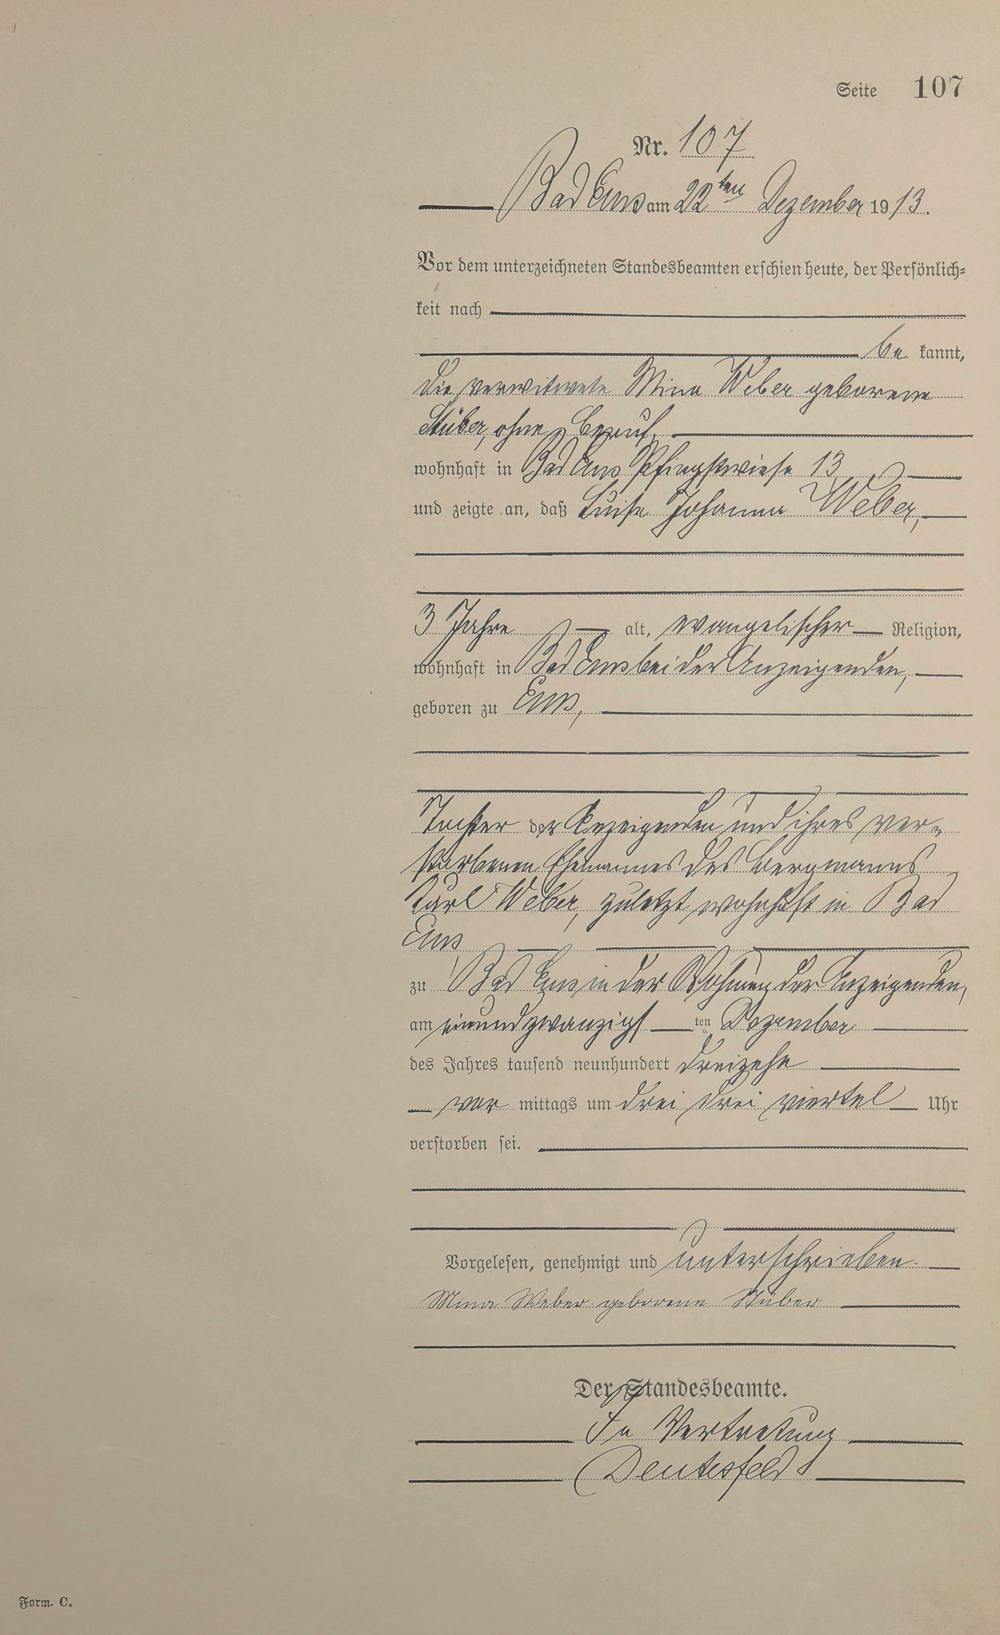 Seite 107
Nr. 107
Bad Ems am 22ten Dezember 1913.
Vor dem unterzeichneten Standesbeamten erschien heute, der Persönlich-
keit nach
be kannt,
die verwitwete Mina Weber geborene
Stüber, ohne Beruf,
wohnhaft in Bad Ems Pfingstwiese 13
und zeigte an, daß Luise Johanna Weber,
3 Jahre alt, evangelischer Religion,
wohnhaft in Bad Ems bei der Anzeigenden,
geboren zu Ems,
Tochter der Anzeigenden und ihres ver-
storbenen Ehemannes des Bergmanns
Karl Weber, zuletzt wohnhaft in Bad
Ems
zu Bad Ems in der Wohnung der Anzeigenden,
am einundzwanzigsten Dezember
des Jahres tausend neunhundert dreizehn
vor mittags um drei drei viertel Uhr
verstorben sei.
Vorgelesen, genehmigt und unterschrieben.
Mina Weber geborene Stüber
Der Standesbeamte.
In Vertretung
Deutesfeld
Form. C.